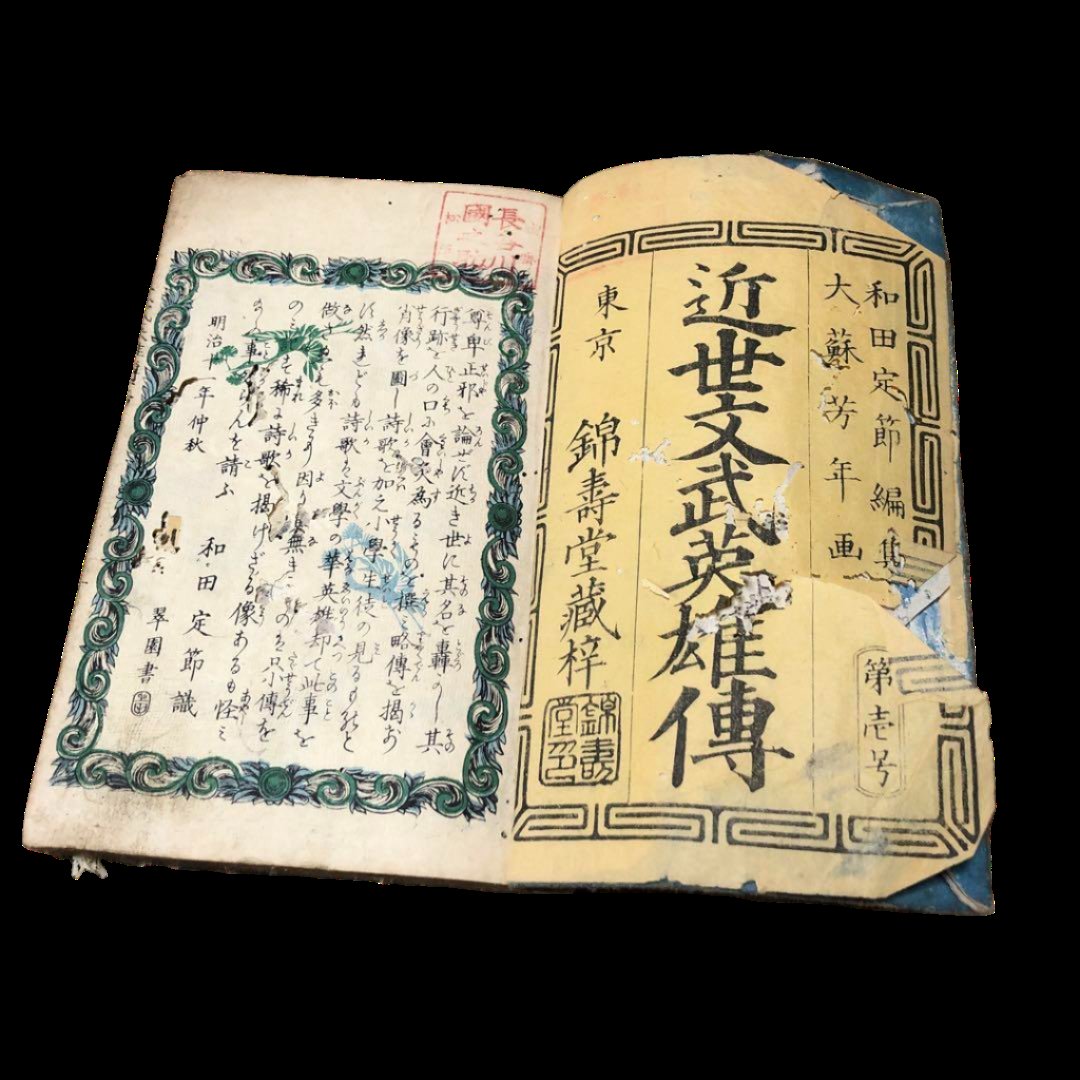 和田定節編集
大蘇芳年画
第壱号
近世文武英雄傳
東京 錦壽堂藏梓
錦壽堂印
長谷川
國
尊卑正邪を論せす近き世に其名を轟かし其
行跡を人の口に會炙為るものを撰ミ略傳を揭お
肖像を圖し詩歌を加え小學生徒の見るものと
然れども詩歌ハ文學の華英雄却て此事を
做さぬも多きより因り無きものハ只小傳を
のミ稀に詩歌を揭げざる像あるも怪ミ
事らんを請ふ
明治十一年仲秋
和田定節識
翠園書